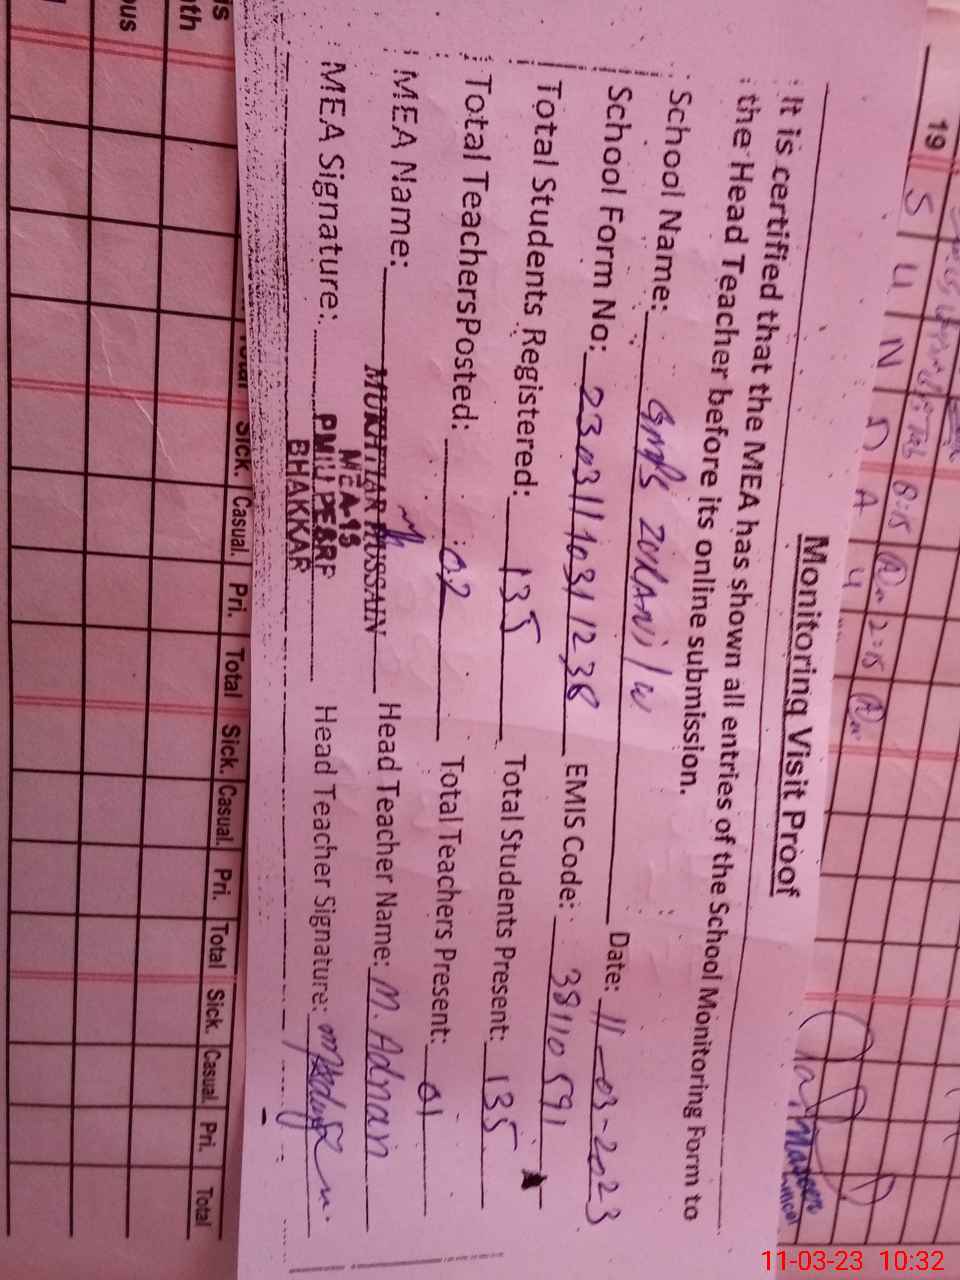 19
S U N D A Y
8:15 2:15
Monitoring Visit Proof
It is certified that the MEA has shown all entries of the School Monitoring Form to
the Head Teacher before its online submission.
School Name: GMPS ZURANI/W Date: 11-03-2023
School Form No: 230311103112 38 EMIS Code: 38110591
Total Students Registered: 135 Total Students Present: 135
Total TeachersPosted: 02 Total Teachers Present: 01
MEA Name: MUKHTIAR HUSSAIN Head Teacher Name: M. Adnan
MEA-18
MEA Signature: PMIU PESRP Head Teacher Signature:
BHAKKAR
Sick. Casual. Pri. Total Sick. Casual. Pri. Total Sick. Casual. Pri. Total
11-03-23 10:32